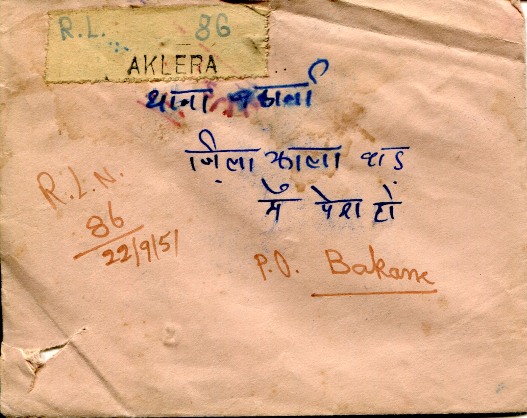 R.L. 86
AKLERA
थाना बकानी
जिला झाला वाड़
में पेश हो
R.L.N.
86
22/9/51
P.O. Bakane